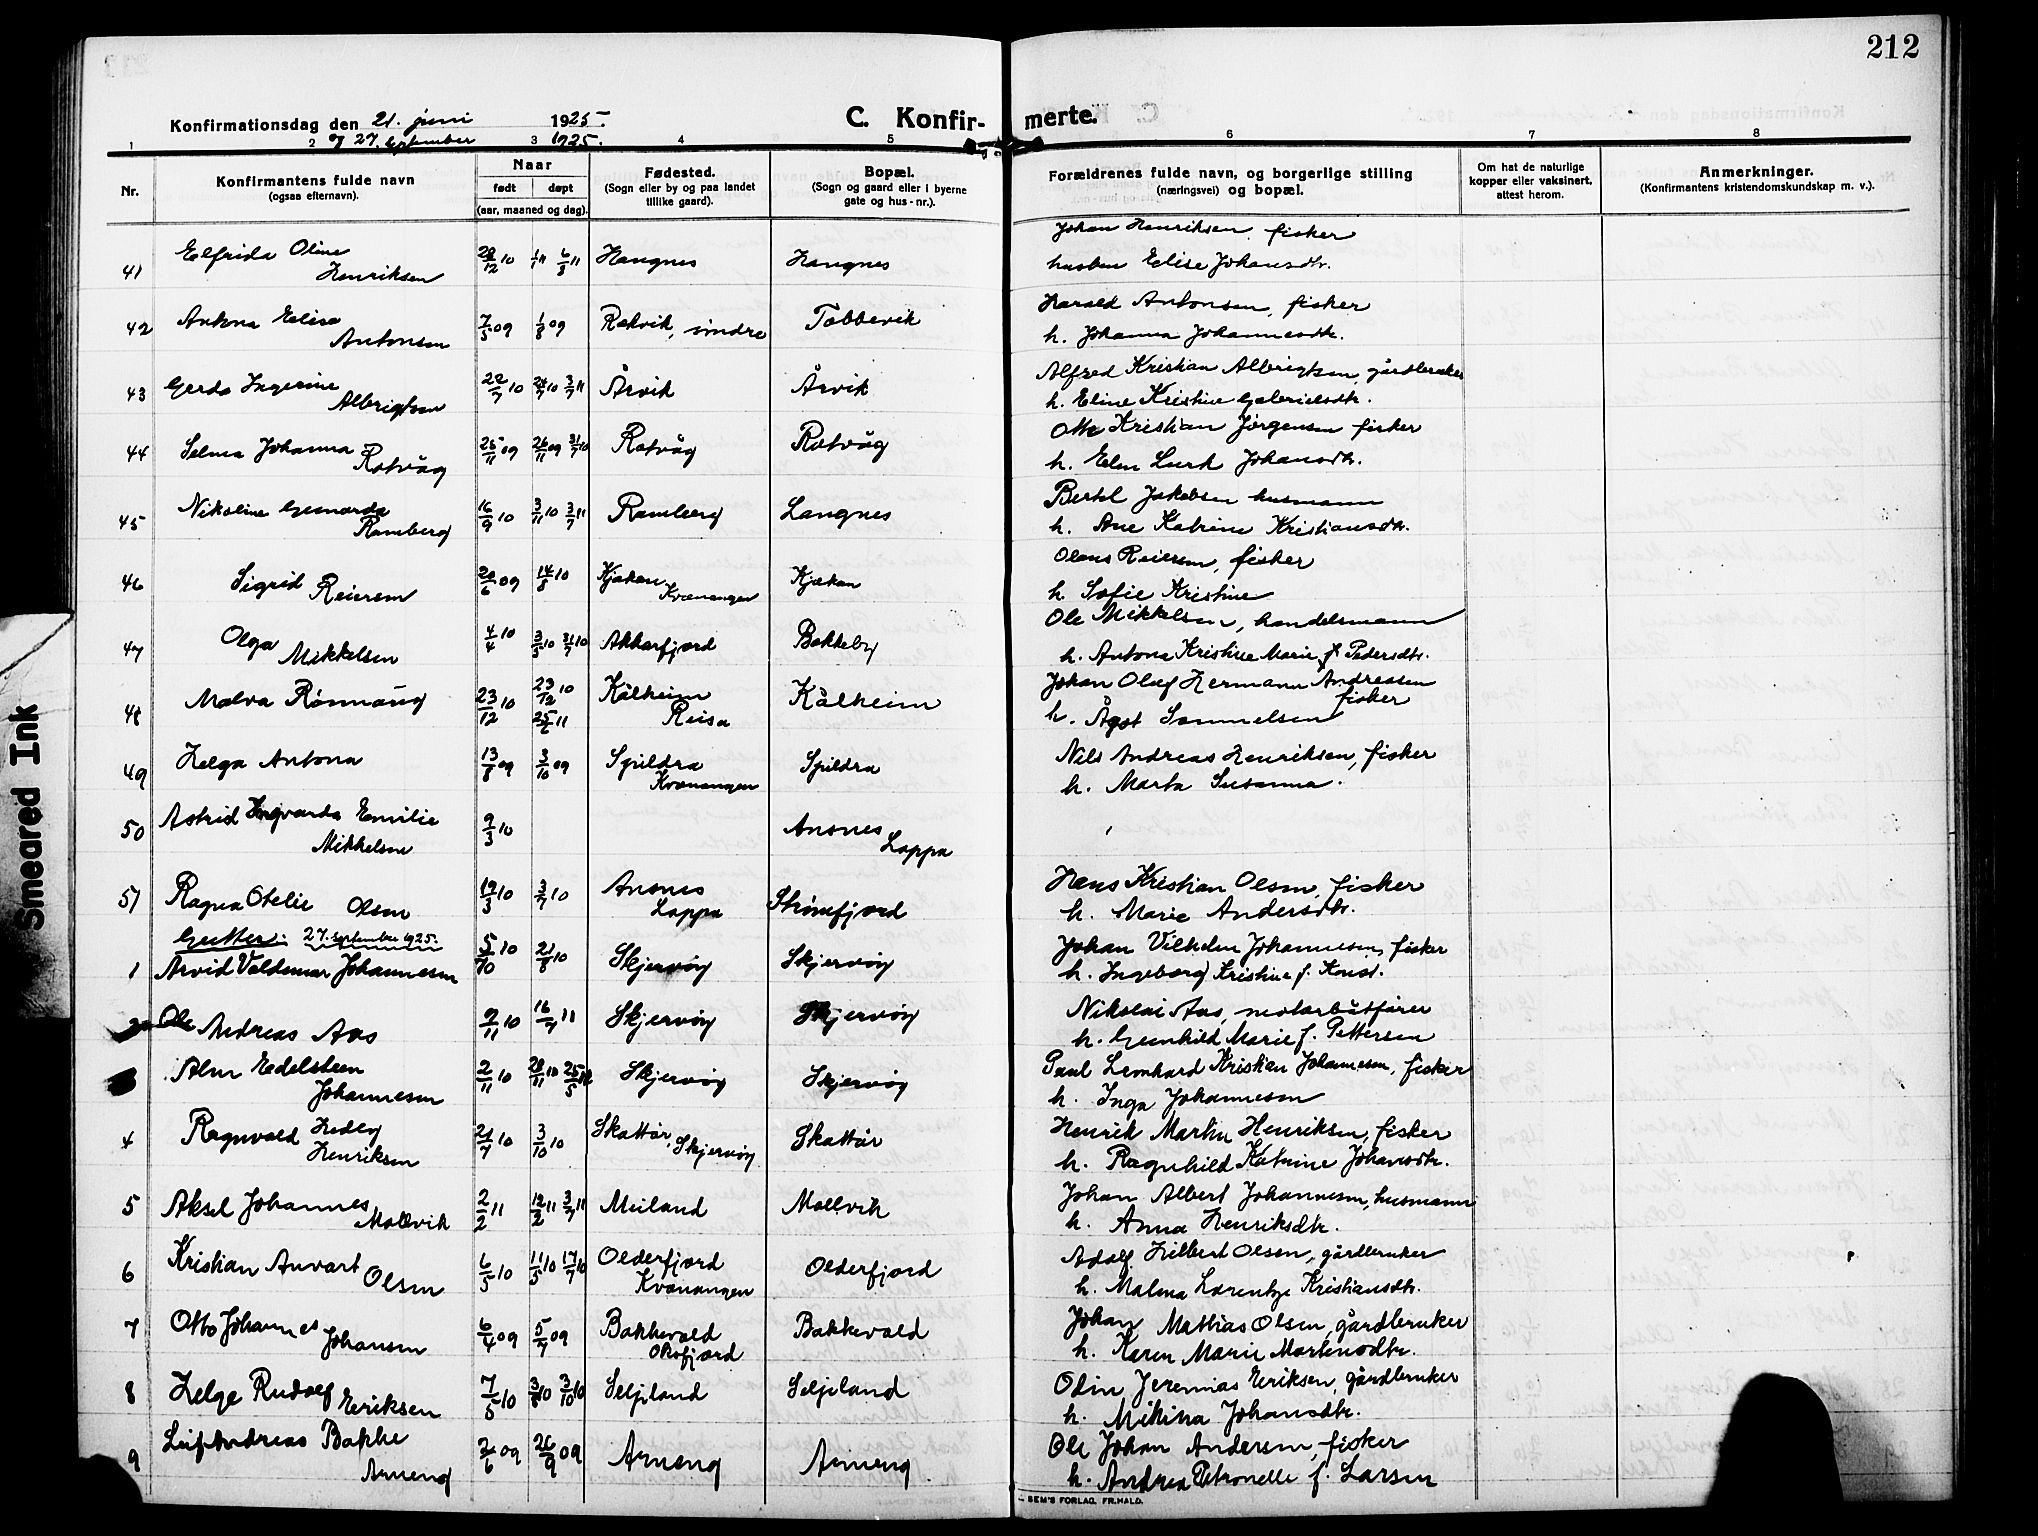 212
Konfirmationsdag den 21. juni 1925.
og 27. september 1925.
C. Konfir- merte.
1 2 3 4 5 6 7 8
Nr.
Konfirmantens fulde navn
(ogsaa efternavn).
Naar
født døpt
(aar, maaned og dag).
Fødested.
(Sogn eller by og paa landet
tillike gaard).
Bopæl.
(Sogn og gaard eller i byerne
gate og hus-nr.).
Forældrenes fulde navn, og borgerlige stilling
(næringsvei) og bopæl.
Om hat de naturlige
kopper eller vaksinert,
attest herom.
Anmerkninger.
(Konfirmantens kristendomskundskap m. v.).
41 Elfrida Oline Henriksen 28/12 10 1/1 11 6/8 11 Hangnes Hangnes
Johan Henriksen, fisker
hustru Elise Johansdtr.
42 Antona Elisa Antonsen 7/5 09 1/8 09 Rakvik, indre Tobbevik
Harald Antonsen, fisker
h. Johanna Johannesdtr.
43 Gerda Ingerine Albrigtsen 22/7 10 24/7 10 3/7 11 Årvik Årvik
Alfred Kristian Albrigtsen, gårdbruker
h. Eline Kristine Gabrielsdtr.
44 Selma Johanna Rotvåg 25/11 09 26/11 09 31/7 10 Rotvåg Rotvåg
Otto Kristian Jørgensen fisker
h. Johansdtr.
45 Nikoline Ramberg 16/9 10 3/11 10 3/7 11 Ramberg Langnes
Bertel Jakobsen husmann
h. Ane Katrine Kristiansdtr.
46 Sigrid Reiersen 20/6 09 14/8 10 Kjækan Kvænangen Kjækan
Olaus Reiersen, fisker
h. Sofie Kristine
47 Olga Mikkelsen 4/4 10 3/5 10 31/7 10 Akkarfjord Bakkeby
Ole Mikkelsen, handelsmann
h. Antona Kristine Marie f. Pedersdtr.
48 Malva Rønnaug 23/12 10 23/12 10 25/6 11 Kålheim Reisa Kålheim
Johan Oluf Hermann Andreasen fisker
h. Ågot Samuelsen
49 Helga Antona 13/8 09 3/10 09 Spildra Kvænangen Spildra
Nils Andreas Henriksen, fisker
h. Marta Susanna.
50 Astrid Ingvarda Emilie Mikkelsen 9/3 10 Ansnes Loppa
51 Ragna Otelie Olsen 19/3 10 3/7 10 Ansnes Loppa Strømfjord
Hans Kristian Olsen, fisker
h. Marie Andersdtr.
Gutter: 27. september 1925.
1 Arvid Valdemar Johannesen 5/10 10 21/8 10 Skjervøy Skjervøy
Johan Vilhelm Johannesen, fisker
h. Ingeborg Kristine f. Knut.
2 Ole Andreas Aas 9/11 10 16/7 11 Skjervøy Skjervøy
Nikolai Aas, motorbåtfører
h. Gunhild Marie f. Pettersen
3 Alm Edelsteen Johannesen 2/11 10 28/11 10 25/5 Skjervøy Skjervøy
Paul Leonhard Kristian Johannesen, fisker
h. Inga Johannesen
4 Ragnvald Hedley Henriksen 21/7 10 3/10 10 Skattør, Skjervøy Skattør
Henrik Martin Henriksen, fisker
h. Ragnhild Katrine Johansdtr.
5 Aksel Johannes Mollvik 2/2 11 12/2 11 3/7 11 Meiland Mollvik
Johan Albert Johannesen, husmann
h. Anna Henriksdtr.
6 Kristian Anvart Olsen 6/5 10 11/5 10 17/7 10 Olderfjord Kvænangen Olderfjord
Adolf Hilbert Olsen, gårdbruker
h. Malma Lorentze Kristiansdtr.
7 Otto Johannes Johansen 6/4 09 5/7 09 Bakkevold Oksfjord Bakkevold
Johan Mathias Olsen, gårdbruker
h. Karen Marie Martinsdtr.
8 Helge Rudolf Eriksen 7/5 10 3/8 10 3/10 10 Seljeland Seljeland
Odin Jeremias Eriksen, gårdbruker
h. Mikina Johansdtr.
9 Leif Andreas Bakke Arneng 2/6 09 26/9 09 Arneng Arneng
Ole Johan Andersen, fisker
h. Andrea Petronelle f. Larsen
SEM'S FORLAG, FR.HALD.
Smeared Ink